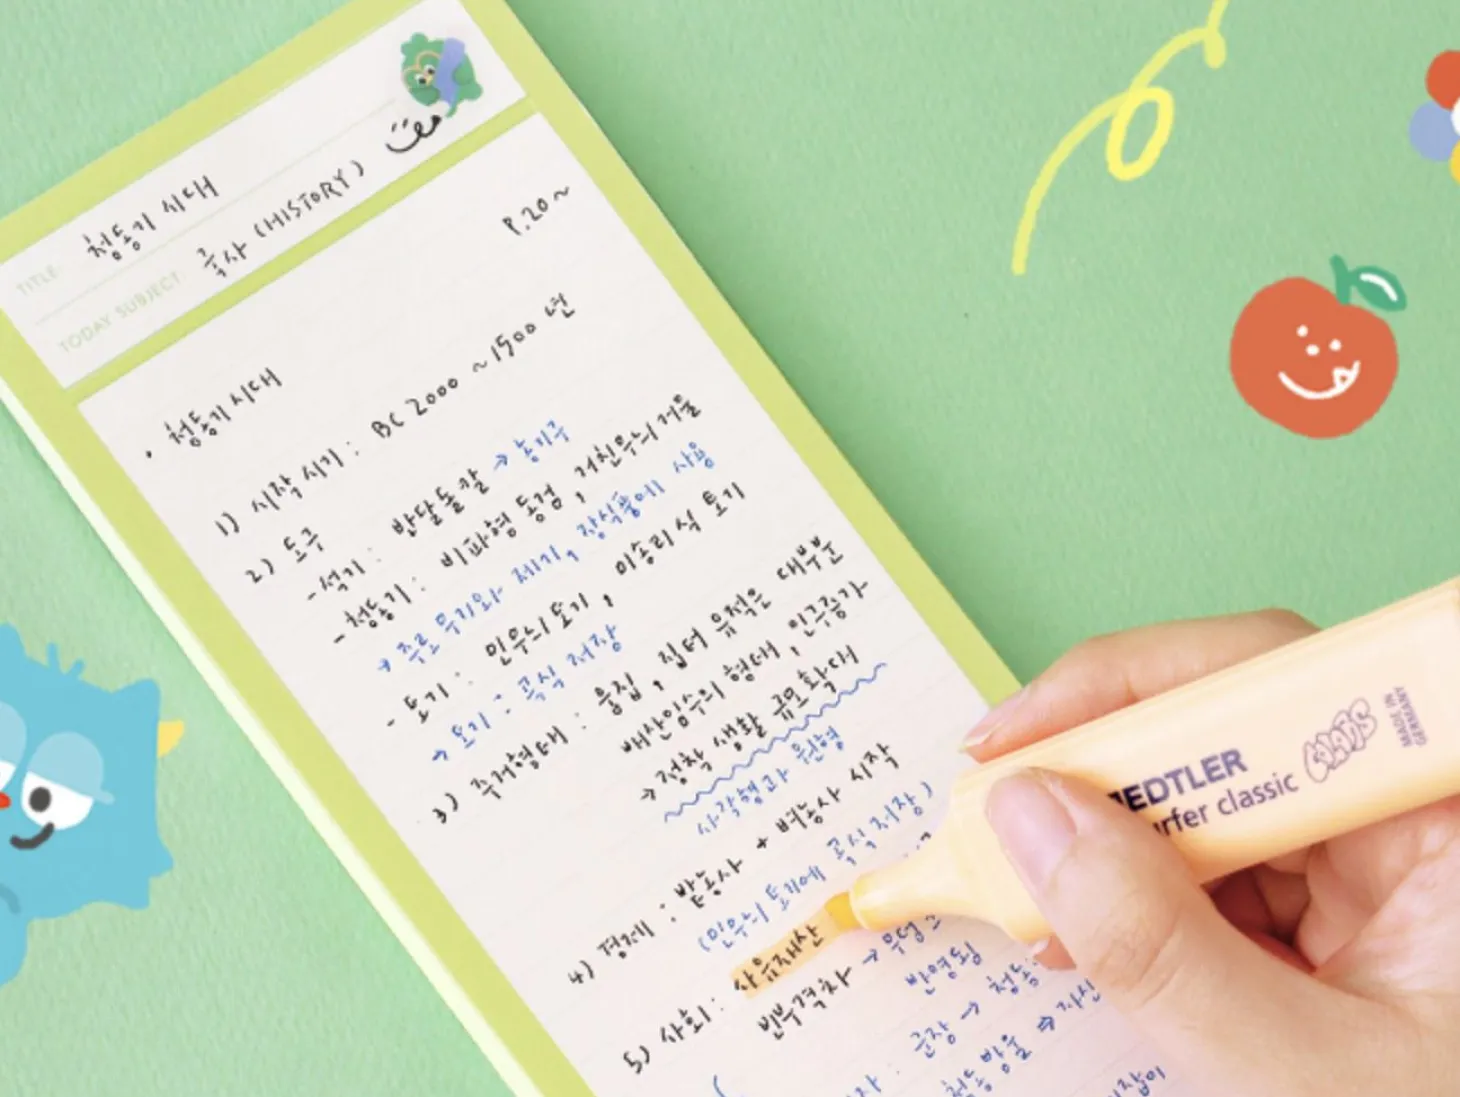 TITLE 청동기 시대
TODAY SUBJECT 국사 (HISTORY)
P.20~
· 청동기 시대
1) 시작 시기 : BC 2000 ~ 1500 년
2) 도구
- 석기 : 반달돌칼 → 농기구
- 청동기 : 비파형 동검 , 거친무늬 거울
→ 주로 무기와 제기, 장식품에 사용
- 토기 : 민무늬 토기 , 미송리 식 토기
→ 토기 : 곡식 저장
3) 주거형태 : 움집 , 집터 유적은 대부분
배산임수의 형태 , 인구증가
→ 정착 생활 규모확대
사각형과 원형
4) 경제 : 밭농사 + 벼농사 시작
(민무늬 토기에 곡식 저장)
5) 사회 : 사유재산
빈부격차 → 무덤
반영됨
: 군장 → 청동
청동 방울 ⇒ 자신
STAEDTLER
classic
MADE IN
GERMANY